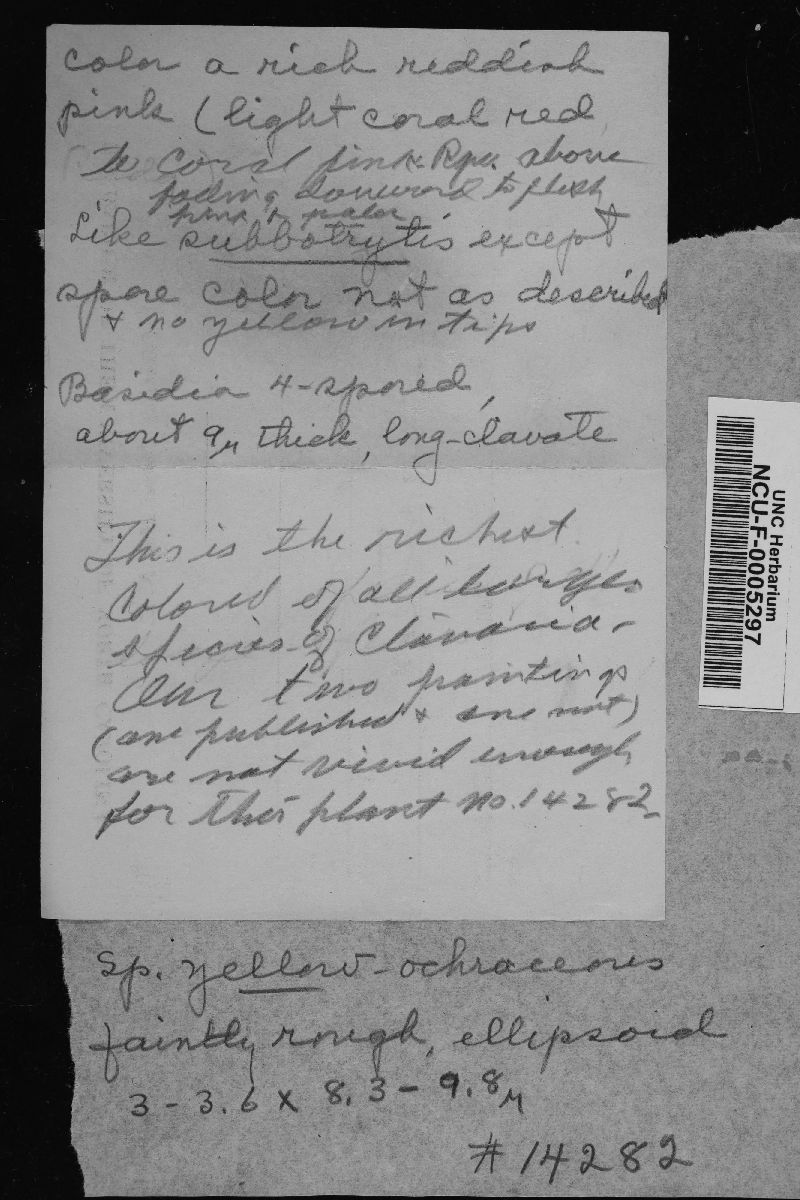 color a rich reddish
pink (light coral red
to coral pink Rgw. above
fading downward to flesh
pink or paler
Like subbotrytis except
spore color not as described
& no yellow in tips
Basidia 4-spored,
about 9μ thick, long-clavate
This is the richest
colored of all larger
species of Clavaria.
Our two paintings
(one published & one not)
are not vivid enough
for this plant no. 14282
UNC Herbarium
NCU-F-0005297
Sp. yellow-ochraceous
faintly rough, ellipsoid
3-3.6 x 8.3-9.8μ
#14282